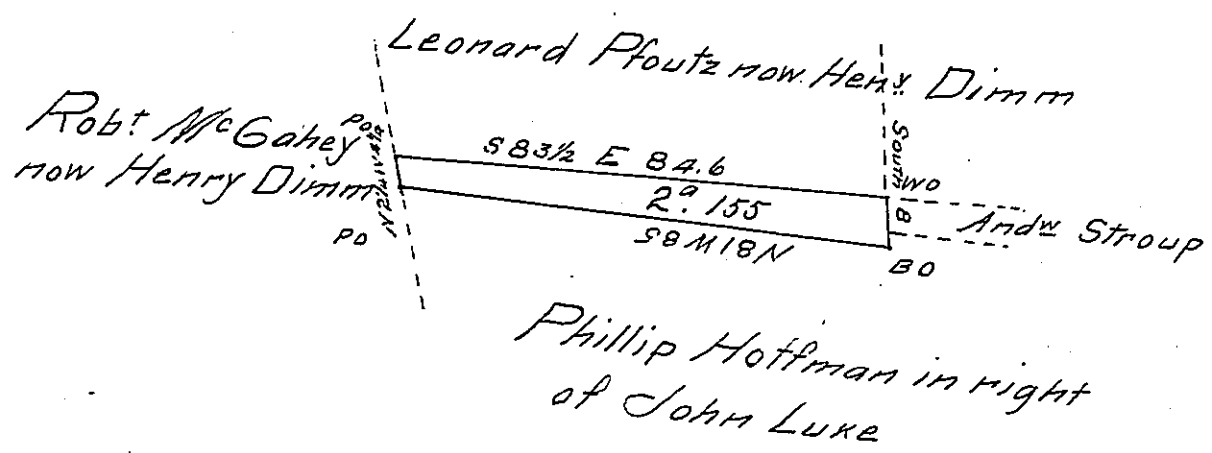 Leonard Pfoutz now Hen.y Dimm
Rob.t McGahey
now Henry Dimm
PO
PO
S 83½ E 84.6
2.a 155
South
WO
8
BO
And.w Stroup
Phillip Hoffman in right
of John Luke